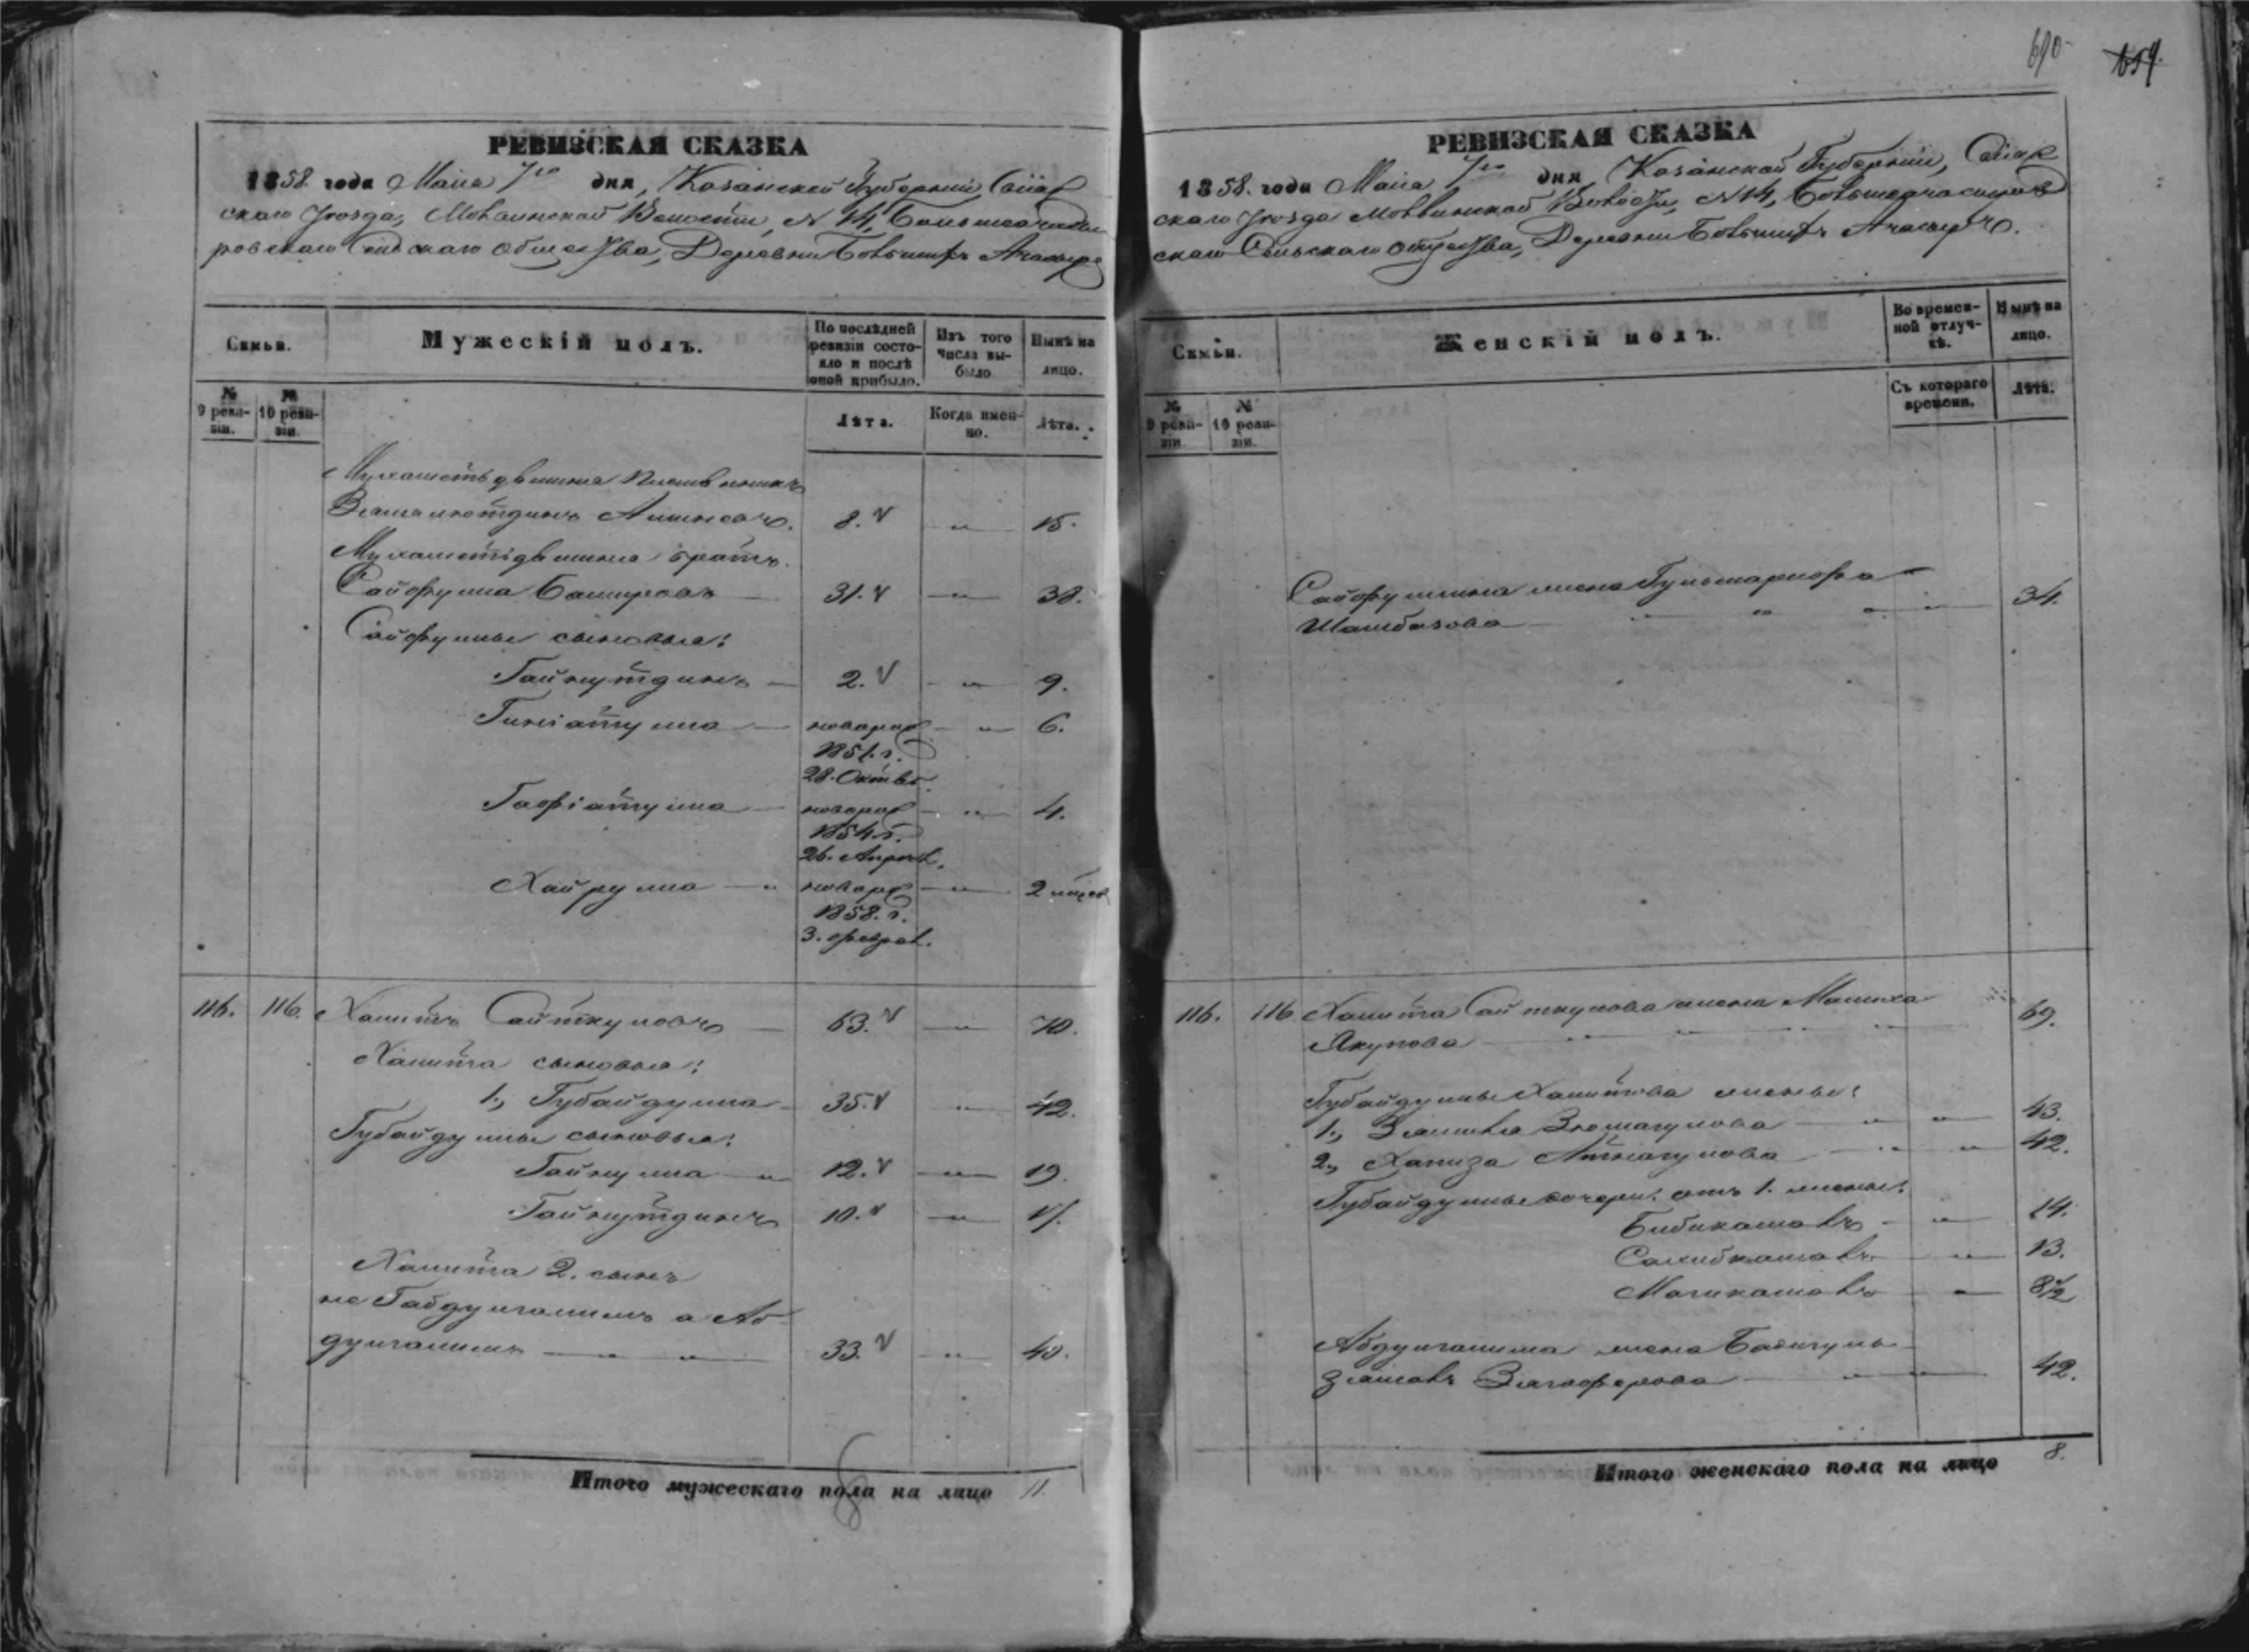 690
659.
РЕВИЗСКАЯ СКАЗКА
1858. года Маiя 7го дня, Казанской Губернiи, Свiяж
скаго Уѣзда, Молвинской Волости, № 14, Большеачасы
ровскаго Сельскаго Общества, Деревни Большихъ Ачасыръ
Семьи.
Мужескiй полъ.
По послѣдней ревизiи состояло и послѣ оной прибыло.
Изъ того числа выбыло.
Нынѣ на лицо.
№ 9 ревизiи.
№ 10 ревизiи.
Лѣта.
Когда именно.
Лѣта.
Мухаметьдвшина племянникъ
Зямалютдинъ Алкинъ. 8. „ 15.
Мухаметдвшина братъ.
Сайфулла Башировъ 31. „ 38.
Сайфуллы сыновья:
Гайнутдинъ 2. „ 9.
Гинiатулла новорож „ 6.
1851. г.
28. Октяб.
Гафiатулла новорож „ 4.
1854. г.
26. Апрѣл.
Хайрулла „ новорж „ 2 мѣсяц
1858. г.
3. феврал.
116. 116. Халитъ Сайткуловъ 63. „ 70.
Халита сыновья:
1., Губайдулла 35. „ 42.
Губайдуллы сыновья:
Гайнулла „ 12. „ 19.
Гайнутдинъ 10. „ 17.
Халита 2. сынъ
не Габдулгалимъ а Аб
дулгалимъ „ „ 33. „ 40.
Итого мужескаго пола на лицо 11.
РЕВИЗСКАЯ СКАЗКА
1858. года Маiя 7го дня Казанской Губернiи, Свiяж
скаго Уѣзда Молвинской Волости, № 14, Большеачасыров
скаго Сельскаго Общества, Деревни Большихъ Ачасыръ.
Семьи.
Женскiй полъ.
Во временной отлучкѣ.
Нынѣ на лицо.
№ 9 ревизiи.
№ 10 ревизiи.
Съ котораго времени.
Лѣта.
Сайфуллина жена
Шамбазова „ „ „ „ 34.
116. 116. Халита Сайткулова жена Малиха
Якупова „ „ „ „ 69.
Губайдуллы Халитова жены:
1., Зюмагулова „ „ 43.
2., Хапиза „ „ 42.
Губайдуллы дочери: отъ 1. жены:
Бибикамалъ „ 14.
Сахибкамалъ „ 13.
Магикамалъ „ 8 1/2
Абдулгалима жена Бадигуль
зямалъ Зягоферова „ „ 42.
Итого женскаго пола на лицо 8.